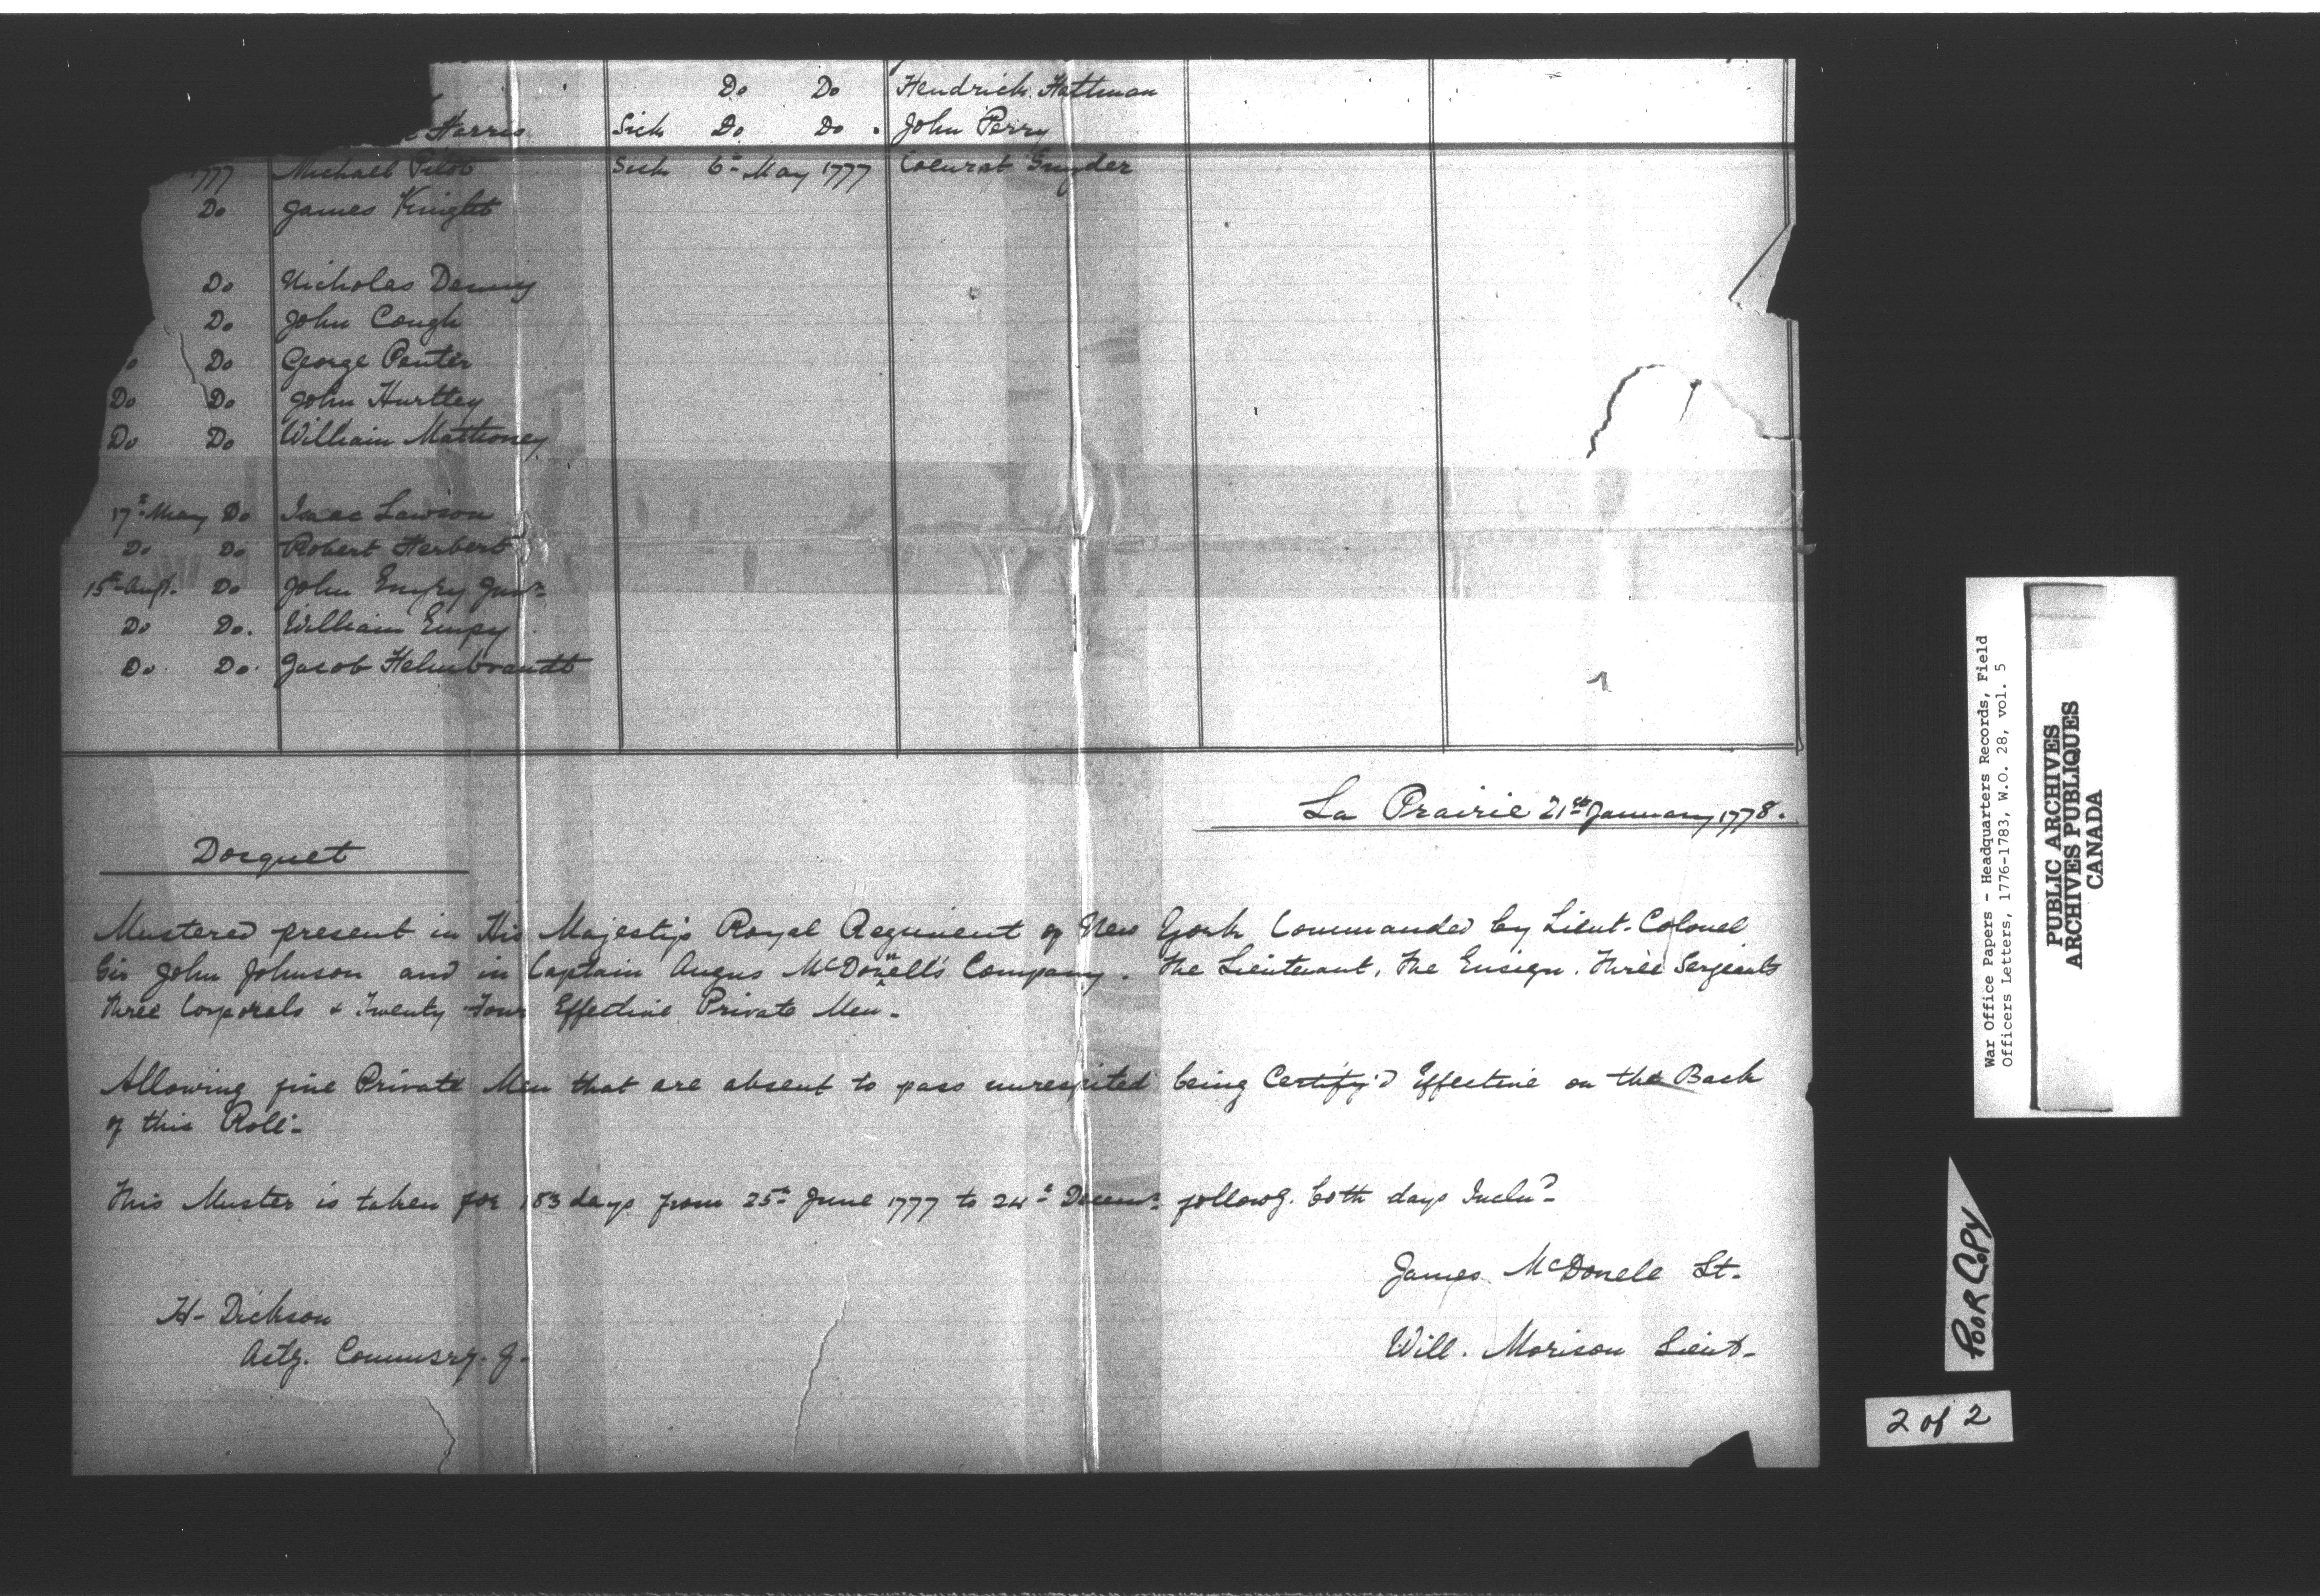 Do Do Hendrick Hattman
Harris Sick Do Do. John Perry
1777 Michael Sick 6th May 1777 Snyder
Do James Knight
Do Nicholas
Do John Cough
Do George Penter
Do Do John Hurtley
Do Do William Mathoney
17th May Do Isaac Lawson
Do Do Robert Herbert
15th Augt. Do John Jun
Do Do. William Empy
Do. Do. Jacob Helmbrandt
La Prairie 21st January 1778.
Docquet
Mustered present in His Majesty's Royal Regiment of New York Commanded by Lieut-Colonel
Sir John Johnson and in Captain Angus McDonell's Company. The Lieutenant, The Ensign. Three Sergeants
Three Corporals & Twenty Four Effective Private Men-
Allowing five Private Men that are absent to pass unrespited being Certify'd Effective on the Back
of this Roll-
This Muster is taken for 183 days from 25th June 1777 to 24th Decemr followg. both days Inclu
James McDonele Lt.
H- Dickson
Will. Morison Lieut-
Actg. Commisry. G-
War Office Papers - Headquarters Records, Field
Officers Letters, 1776-1783, W.O. 28, vol. 5
PUBLIC ARCHIVES
ARCHIVES PUBLIQUES
CANADA
POOR COPY
2 of 2